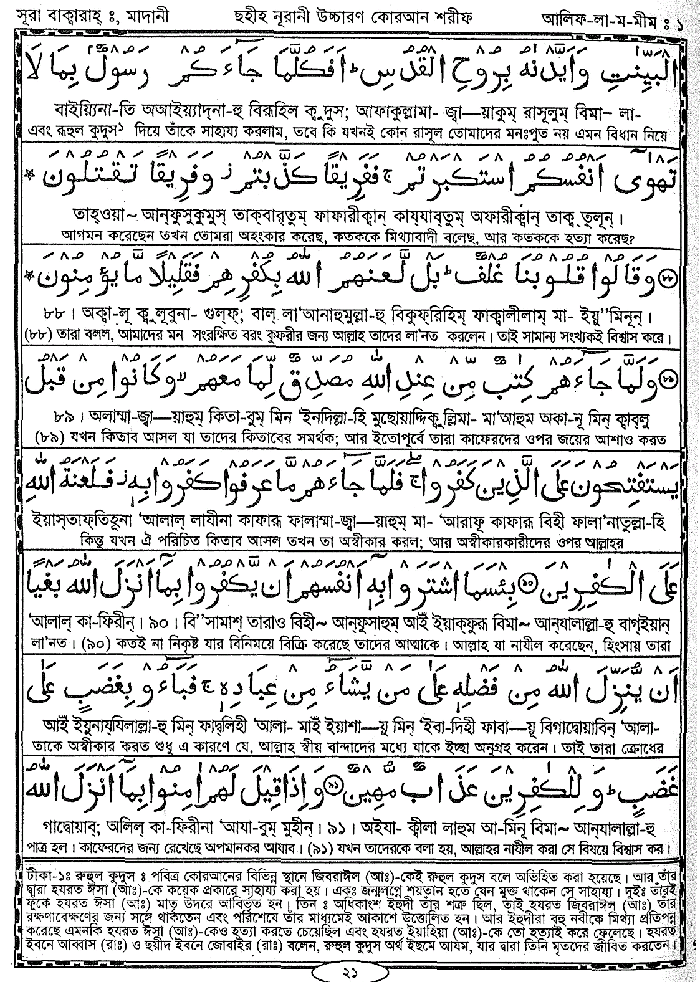 সূরা বাক্বারাহ্ ঃ, মাদানী ছহীহ নূরানী উচ্চারণ কোরআন শরীফ আলিফ-লা-ম-মীম ঃ ১
الْبَيِّنٰتِ وَاَيَّدْنٰهُ بِرُوْحِ الْقُدُسِ ؕ اَفَكُلَّمَا جَآءَكُمْ رَسُوْلٌۢ بِمَا لَا
বাইয়্যিনা-তি অআইয়্যাদ্‌না-হু বিরূহিল ক্বুদুস; আফাকুল্লামা- জ্বা—য়াকুম্ রাসূলুম্ বিমা- লা-
এবং রূহুল কুদুস১ দিয়ে তাঁকে সাহায্য করলাম, তবে কি যখনই কোন রাসূল তোমাদের মনঃপুত নয় এমন বিধান নিয়ে
تَهْوٰۤى اَنْفُسُكُمُ اسْتَكْبَرْتُمْ ۚ فَفَرِيْقًا كَذَّبْتُمْ ۫ وَفَرِيْقًا تَقْتُلُوْنَ *
তাহ্ওয়া~ আন্‌ফুসুকুমুস্ তাক্‌বার্‌তুম্ ফাফারীক্বান্ কায্‌যাব্‌তুম্ অফারীক্বান্ তাক্ব্‌ তুলূন্।
আগমন করেছেন তখন তোমরা অহংকার করেছ, কতককে মিথ্যাবাদী বলেছ, আর কতককে হত্যা করেছ?
(৮৮) وَقَالُوْا قُلُوْبُنَا غُلْفٌ ؕ بَلْ لَّعَنَهُمُ اللّٰهُ بِكُفْرِهِمْ فَقَلِيْلًا مَّا يُؤْمِنُوْنَ *
৮৮। অক্বা-লূ ক্বুলূবুনা- গুল্‌ফ্; বাল্ লা'আনাহুমুল্লা-হু বিকুফ্‌রিহিম্ ফাক্বালীলাম্ মা- ইয়ু''মিনূন্।
(৮৮) তারা বলল, আমাদের মন সংরক্ষিত বরং কুফরীর জন্য আল্লাহ তাদের লা'নত করলেন। তাই সামান্য সংখ্যকই বিশ্বাস করে।
(৮৯) وَلَمَّا جَآءَهُمْ كِتٰبٌ مِّنْ عِنْدِ اللّٰهِ مُصَدِّقٌ لِّمَا مَعَهُمْ ۙ وَكَانُوْا مِنْ قَبْلُ
৮৯। অলাম্মা-জ্বা—য়াহুম্ কিতা-বুম্ মিন 'ইনদিল্লা-হি মুছোয়াদ্দিকু্ল্লিমা- মা'আহুম অকা-নূ মিন্ ক্বাবলু
(৮৯) যখন কিতাব আসল যা তাদের কিতাবের সমর্থক; আর ইতোপূর্বে তারা কাফেরদের ওপর জয়ের আশাও করত
يَسْتَفْتِحُوْنَ عَلَى الَّذِيْنَ كَفَرُوْا ۚۖ فَلَمَّا جَآءَهُمْ مَّا عَرَفُوْا كَفَرُوْا بِهٖ ۫ فَلَعْنَةُ اللّٰهِ
ইয়াস্‌তাফ্‌তিহূনা 'আলাল্ লাযীনা কাফারূ ফালাম্মা-জ্বা—য়াহুম্ মা- 'আরাফূ কাফারূ বিহী ফালা'নাতুল্লা-হি
কিন্তু যখন ঐ পরিচিত কিতাব আসল তখন তা অস্বীকার করল; আর অস্বীকারকারীদের ওপর আল্লাহর
عَلَى الْكٰفِرِيْنَ (৯০) بِئْسَمَا اشْتَرَوْا بِهٖۤ اَنْفُسَهُمْ اَنْ يَّكْفُرُوْا بِمَاۤ اَنْزَلَ اللّٰهُ بَغْيًا
'আলাল্ কা-ফিরীন্। ৯০। বি''সামাশ্ তারাও বিহী~ আন্‌ফুসাহুম্ আইঁ ইয়াক্‌ফুরূ বিমা~ আন্‌যালাল্লা-হু বাগ্‌ইয়ান্
লা'নত। (৯০) কতই না নিকৃষ্ট যার বিনিময়ে বিক্রি করেছে তাদের আত্মাকে। আল্লাহ যা নাযীল করেছেন, হিংসায় তারা
اَنْ يُّنَزِّلَ اللّٰهُ مِنْ فَضْلِهٖ عَلٰى مَنْ يَّشَآءُ مِنْ عِبَادِهٖ ۚ فَبَآءُوْ بِغَضَبٍ عَلٰى
আইঁ ইয়ুনায্‌যিলাল্লা-হু মিন্ ফাদ্ব্‌লিহী 'আলা- মাইঁ ইয়াশা—য়ু মিন্ 'ইবা-দিহী ফাবা—য়ূ বিগাদ্বোয়াবিন্ 'আলা-
তাকে অস্বীকার করত শুধু এ কারণে যে, আল্লাহ স্বীয় বান্দাদের মধ্যে যাকে ইচ্ছা অনুগ্রহ করেন। তাই তারা ক্রোধের
غَضَبٍ ؕ وَلِلْكٰفِرِيْنَ عَذَابٌ مُّهِيْنٌ (৯১) وَاِذَا قِيْلَ لَهُمْ اٰمِنُوْا بِمَاۤ اَنْزَلَ اللّٰهُ
গাদ্বোয়াব্; অলিল্ কা-ফিরীনা 'আযা-বুম্ মুহীন্। ৯১। অইযা- ক্বীলা লাহুম্ আ-মিনূ বিমা~ আন্‌যালাল্লা-হু
পাত্র হল। কাফেরদের জন্য রেখেছে অপমানকর আযাব। (৯১) যখন তাদেরকে বলা হয়, আল্লাহর নাযীল করা সে বিষয়ে বিশ্বাস কর।
টীকা-১ঃ রুহুল কুদুস ঃ পবিত্র কোরআনের বিভিন্ন স্থানে জিবরাঈল (আঃ)-কেই রুহুল কুদুস বলে অভিহিত করা হয়েছে। আর তাঁর
দ্বারা হযরত ঈসা (আঃ)-কে কয়েক প্রকারে সাহায্য করা হয়। একঃ জন্মলগ্নে শয়তান হতে যেন মুক্ত থাকেন সে সাহায্য। দুইঃ তাঁরই
ফুঁকে হযরত ঈসা (আঃ) মাতৃ উদরে আবির্ভূত হন। তিন ঃ অধিকাংশ ইহুদী তাঁর শত্রু ছিল, তাই হযরত জিবরাঈল (আঃ) তাঁর
রক্ষণাবেক্ষণের জন্য সঙ্গে থাকতেন এবং পরিশেষে তাঁর মাধ্যমেই আকাশে উত্তোলিত হন। আর ইহুদীরা বহু নবীকে মিথ্যা প্রতিপন্ন
করেছে এমনকি হযরত ঈসা (আঃ)-কেও হত্যা করতে চেয়েছিল এবং হযরত ইয়াহিয়া (আঃ)-কে তো হত্যাই করে ফেলেছে। হযরত
ইবনে আব্বাস (রাঃ) ও ছয়ীদ ইবনে জোবাইর (রাঃ) বলেন, রুহুল কুদুস অর্থ ইছমে আযম, যার দ্বারা তিনি মৃতদের জীবিত করতেন।
২১